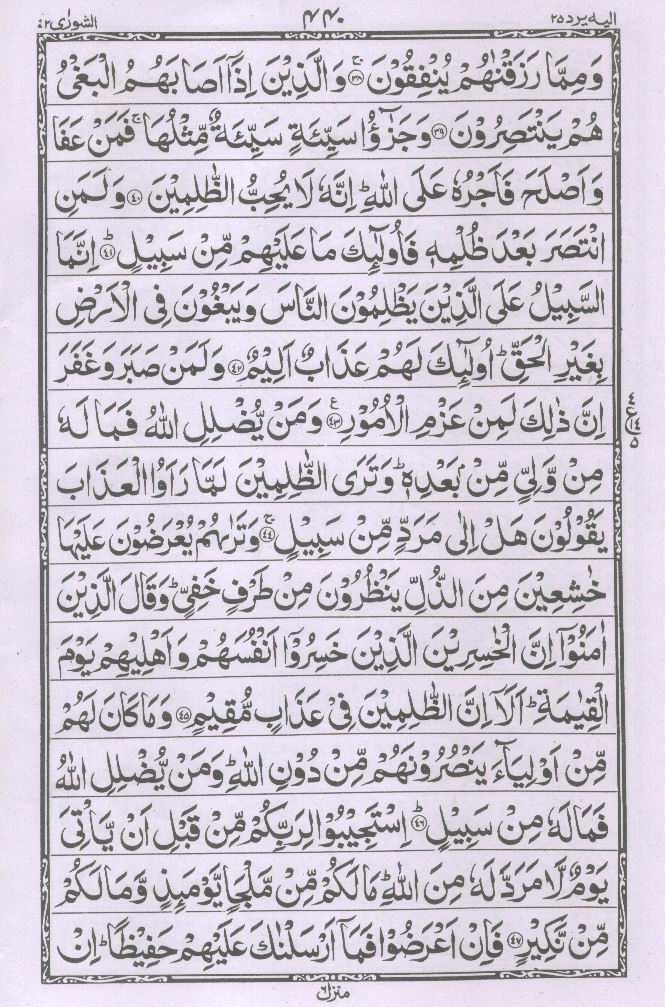 الیہ یرد ۲۵ ۴۴۰ الشورٰی ۴۲
وَمِمَّا رَزَقْنٰهُمْ يُنْفِقُوْنَ ۚ‏﴿۳۸﴾ وَالَّذِيْنَ اِذَاۤ اَصَابَهُمُ الْبَغْىُ
هُمْ يَنْتَصِرُوْنَ ﴿۳۹﴾ وَجَزٰٓؤُا سَيِّئَةٍ سَيِّئَةٌ مِّثْلُهَا ۚ فَمَنْ عَفَا
وَاَصْلَحَ فَاَجْرُهٗ عَلَى اللّٰهِ ؕ اِنَّهٗ لَا يُحِبُّ الظّٰلِمِيْنَ ﴿۴۰﴾ وَلَمَنِ
انْتَصَرَ بَعْدَ ظُلْمِهٖ فَاُولٰٓئِكَ مَا عَلَيْهِمْ مِّنْ سَبِيْلٍ ؕ﴿۴۱﴾ اِنَّمَا
السَّبِيْلُ عَلَى الَّذِيْنَ يَظْلِمُوْنَ النَّاسَ وَيَبْغُوْنَ فِى الْاَرْضِ
بِغَيْرِ الْحَقِّ ؕ اُولٰٓئِكَ لَهُمْ عَذَابٌ اَلِيْمٌ ﴿۴۲﴾ وَلَمَنْ صَبَرَ وَغَفَرَ
اِنَّ ذٰلِكَ لَمِنْ عَزْمِ الْاُمُوْرِ ﴿۴۳﴾ع وَمَنْ يُّضْلِلِ اللّٰهُ فَمَا لَهٗ
۴ ع ۱۴ ۵
مِنْ وَّلِىٍّ مِّنْۢ بَعْدِهٖ ؕ وَتَرَى الظّٰلِمِيْنَ لَمَّا رَاَوُا الْعَذَابَ
يَقُوْلُوْنَ هَلْ اِلٰى مَرَدٍّ مِّنْ سَبِيْلٍ ۚ﴿۴۴﴾ وَتَرٰىهُمْ يُعْرَضُوْنَ عَلَيْهَا
خٰشِعِيْنَ مِنَ الذُّلِّ يَنْظُرُوْنَ مِنْ طَرْفٍ خَفِىٍّ ؕ وَقَالَ الَّذِيْنَ
اٰمَنُوْۤا اِنَّ الْخٰسِرِيْنَ الَّذِيْنَ خَسِرُوْۤا اَنْفُسَهُمْ وَاَهْلِيْهِمْ يَوْمَ
الْقِيٰمَةِ ؕ اَلَاۤ اِنَّ الظّٰلِمِيْنَ فِىْ عَذَابٍ مُّقِيْمٍ ﴿۴۵﴾ وَمَا كَانَ لَهُمْ
مِّنْ اَوْلِيَآءَ يَنْصُرُوْنَهُمْ مِّنْ دُوْنِ اللّٰهِ ؕ وَمَنْ يُّضْلِلِ اللّٰهُ
فَمَا لَهٗ مِنْ سَبِيْلٍ ؕ﴿۴۶﴾ اِسْتَجِيْبُوْا لِرَبِّكُمْ مِّنْ قَبْلِ اَنْ يَّاْتِىَ
يَوْمٌ لَّا مَرَدَّ لَهٗ مِنَ اللّٰهِ ؕ مَا لَكُمْ مِّنْ مَّلْجَاٍ يَّوْمَئِذٍ وَّمَا لَكُمْ
مِّنْ نَّكِيْرٍ ﴿۴۷﴾ فَاِنْ اَعْرَضُوْا فَمَاۤ اَرْسَلْنٰكَ عَلَيْهِمْ حَفِيْظًا ؕ اِنْ
منزل ۶